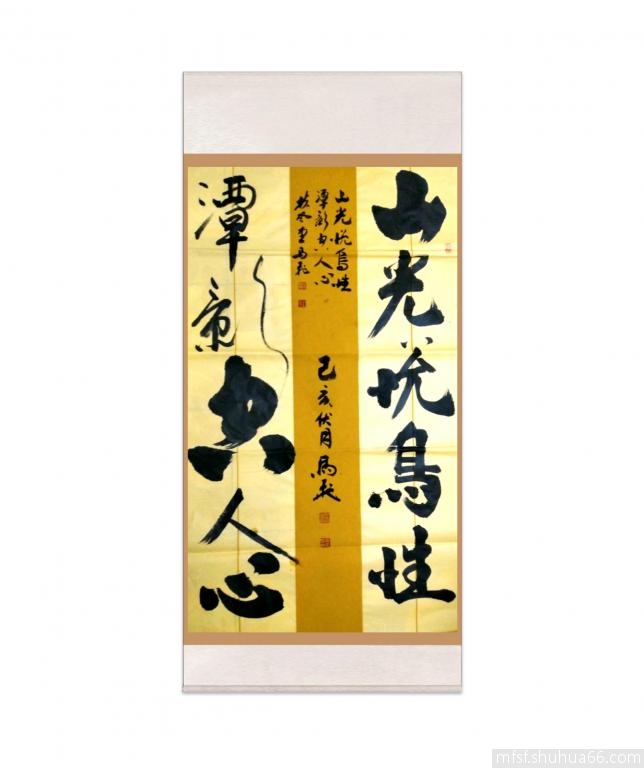 山光悦鳥性
山光悦鳥性
潭影空人心
己亥伏月馬
潭影空人心
mfsf.shuhua66.com